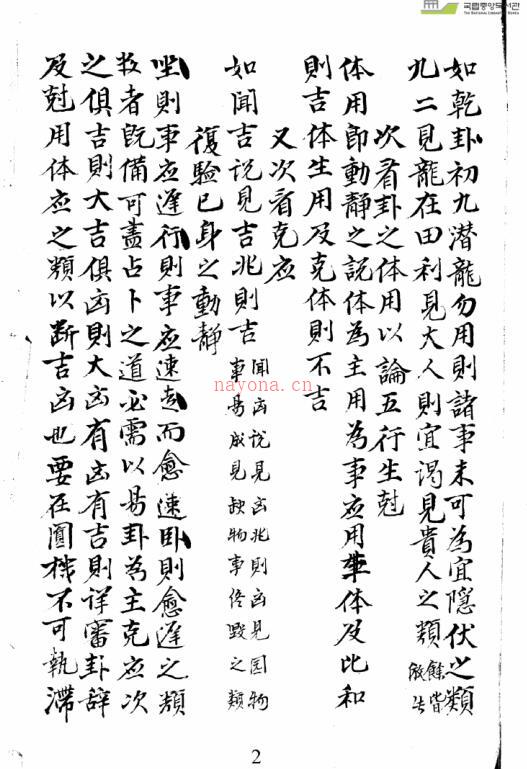 국립중앙도서관
THE NATIONAL LIBRARY OF KOREA
如乾卦初九潜龍勿用則諸事未可為宜隱伏之類
九二見龍在田利見大人則宜谒見貴人之類餘皆倣此
次看卦之体用以論五行生尅
体用即動静之説体為主用為事应用生体及比和
則吉体生用及克体則不吉
又次看克应
如聞吉说見吉兆則吉聞凶说見凶兆則凶見圆物事易成見缺物事终毁之類
復驗已身之動静
坐則事应遲行則事应速走而愈速卧則愈遲之類
数者既備可盡占卜之道必需以易卦為主克应次
之俱吉則大吉俱凶則大凶有凶有吉則详審卦辞
及尅用体应之類以断吉凶也要在圓機不可執滞
nayona.cn
2